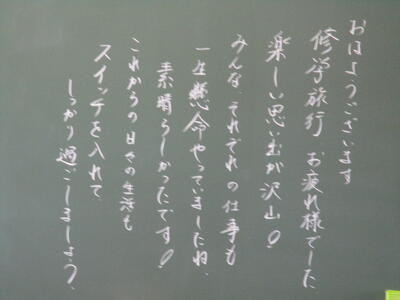 おはようございます
修学旅行 お疲れ様でした
楽しい思い出が沢山!
みんな、それぞれの仕事も
一生懸命やっていましたね、
素晴らしかったです!
これからの日々の生活も
スイッチを入れて
しっかり過ごしましょう。